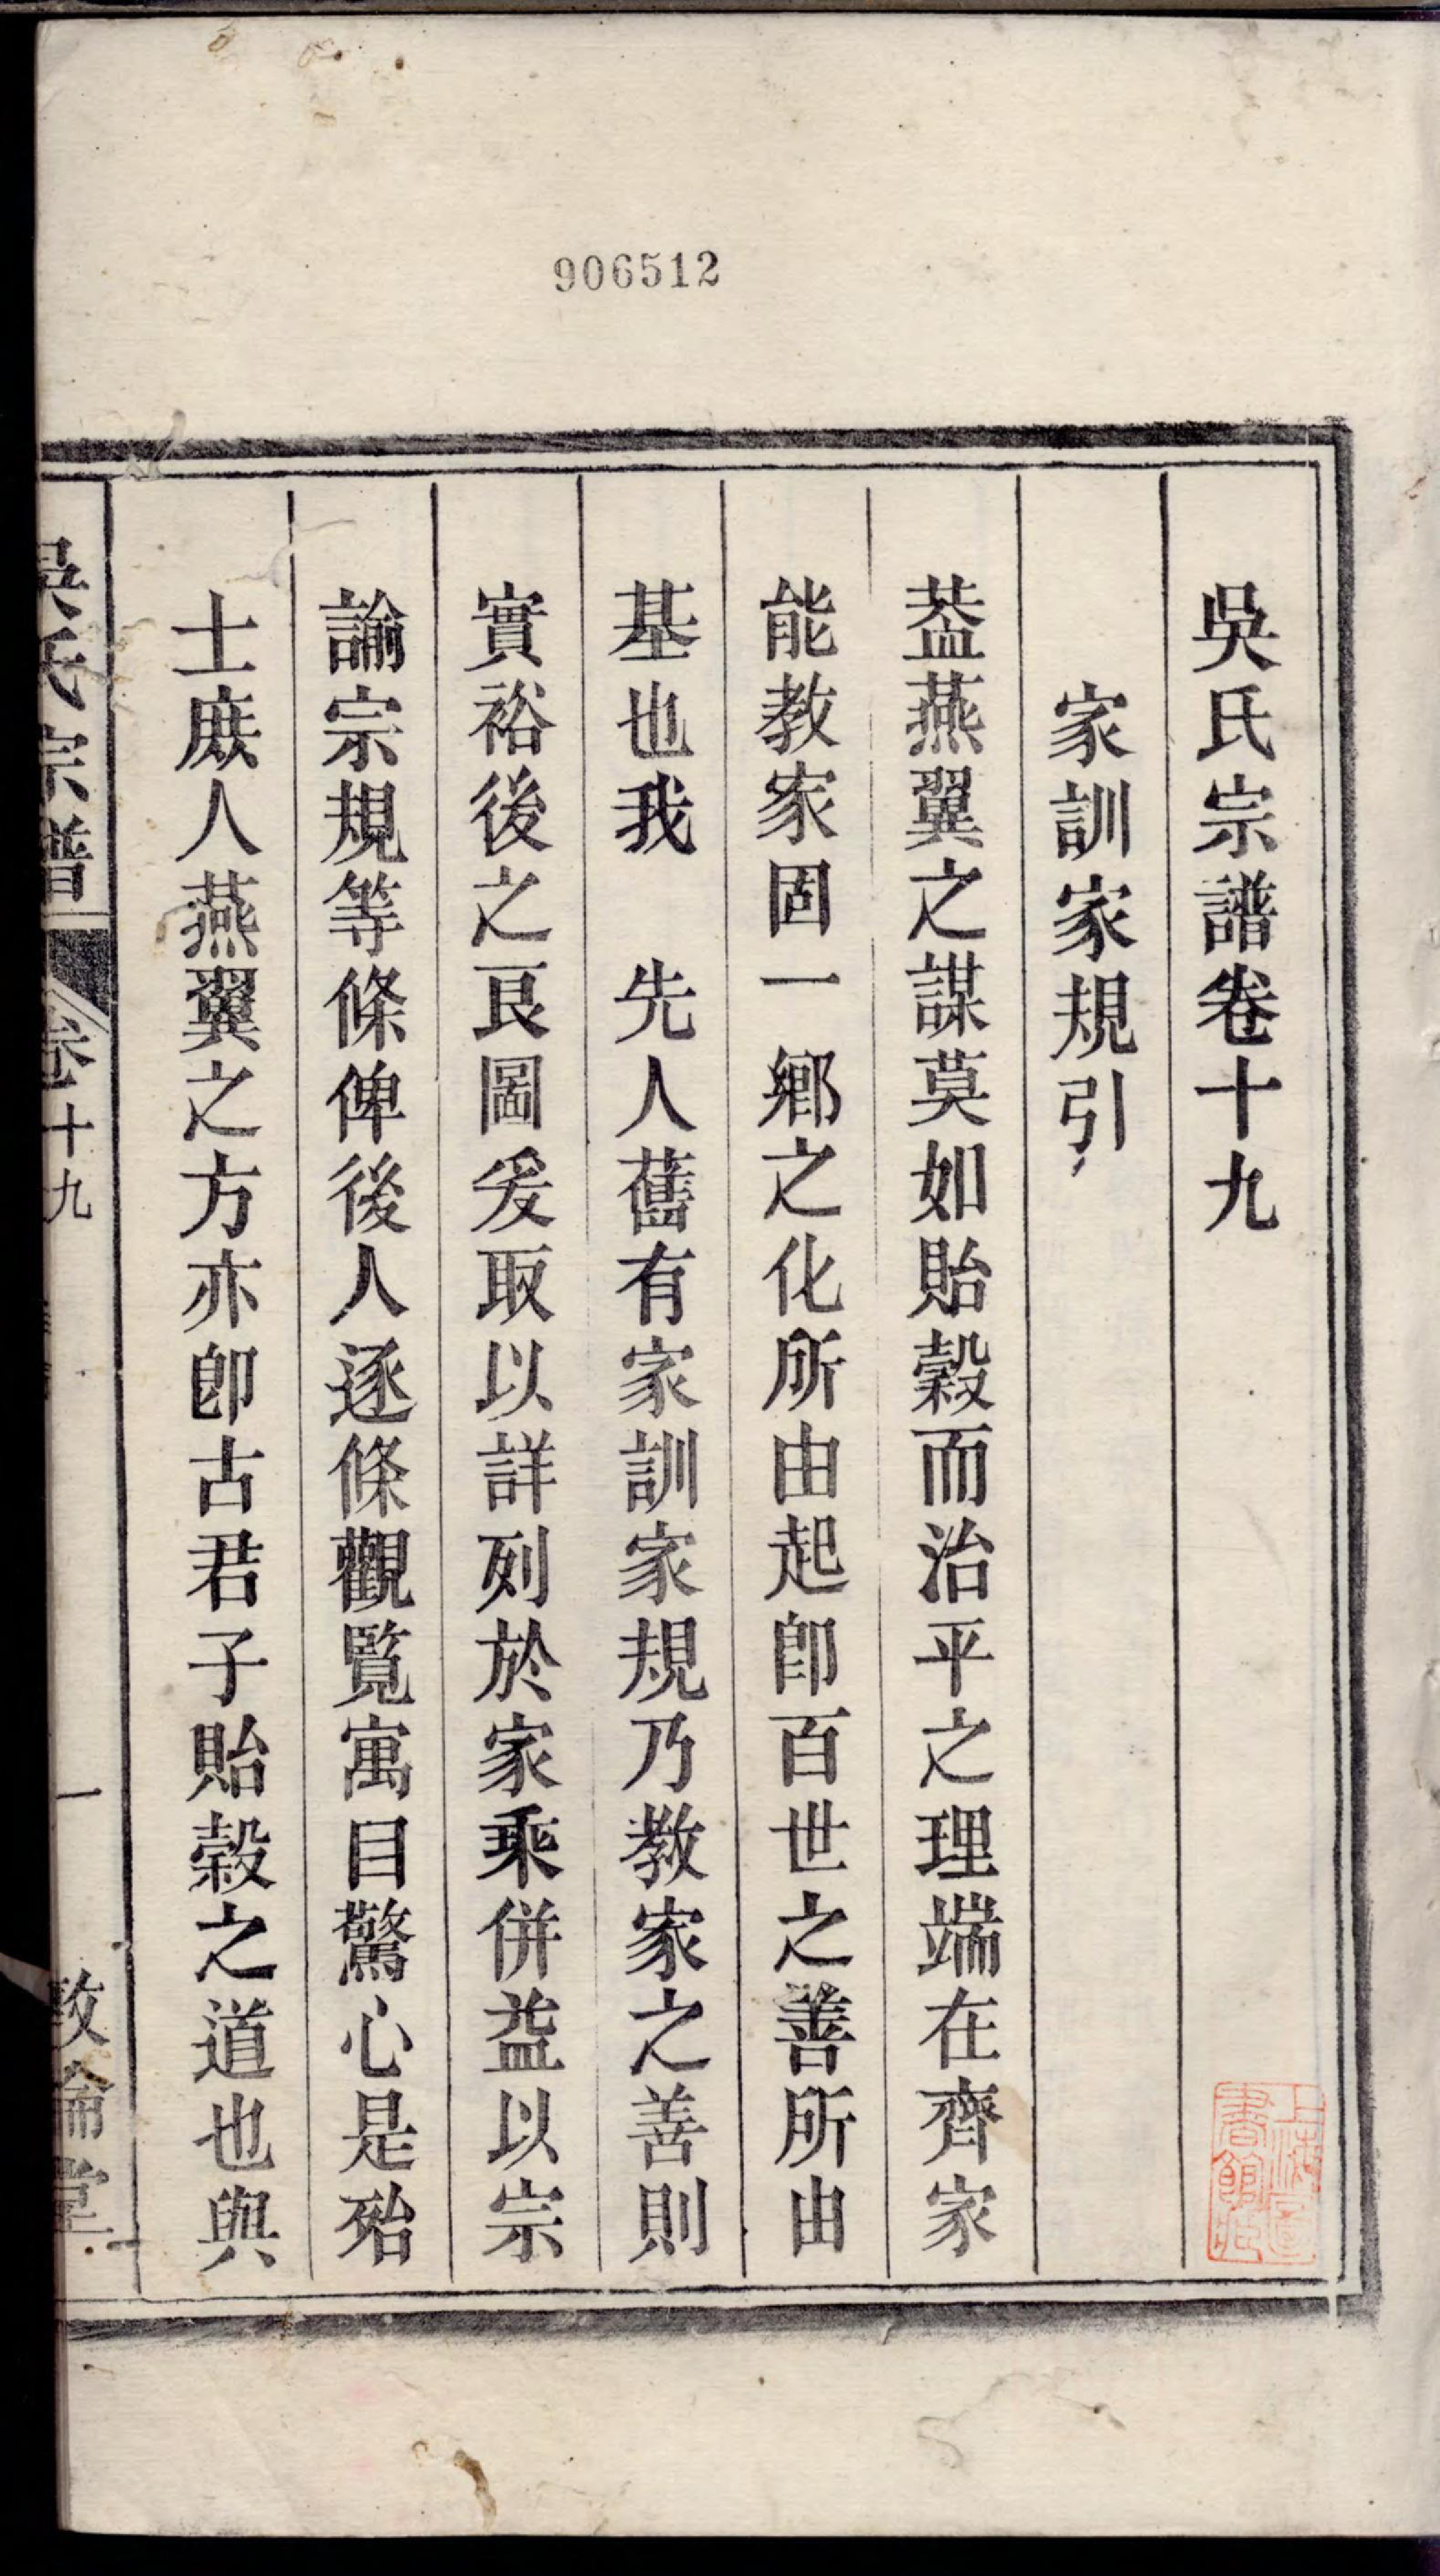 906512
吳氏宗譜卷十九
家訓家規引
葢燕翼之謀莫如貽穀而治平之理端在齊家
能教家固一鄉之化所由起卽百世之善所由
基也我　先人舊有家訓家規乃教家之善則
實裕後之良圖爰取以詳列於家乘併益以宗
諭宗規等條俾後人逐條觀覽寓目驚心是殆
士庶人燕翼之方亦卽古君子貽穀之道也與
吳氏宗譜
卷十九
一
敦倫堂
上海圖書館藏